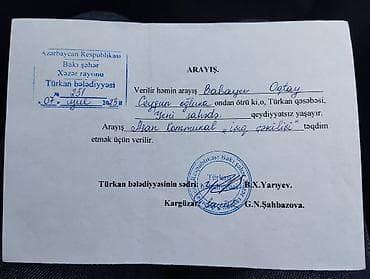 Azərbaycan Respublikası
Bakı şəhər
Xəzər rayonu
Türkan bələdiyyəsi
№ 251
"07" iyul 2023
ARAYIŞ.
Verilir həmin arayış Babayev Oqtay
Ceyqun oğluna ondan ötrü ki,o, Türkan qəsəbəsi,
Yeni sahədə qeydiyyatsız yaşayır.
Arayış kommunal işıq çəkilişi təqdim
etmək üçün verilir.
Türkan bələdiyyəsinin sədri: B.X.Yarıyev.
Kargüzar: G.N.Şahbazova.